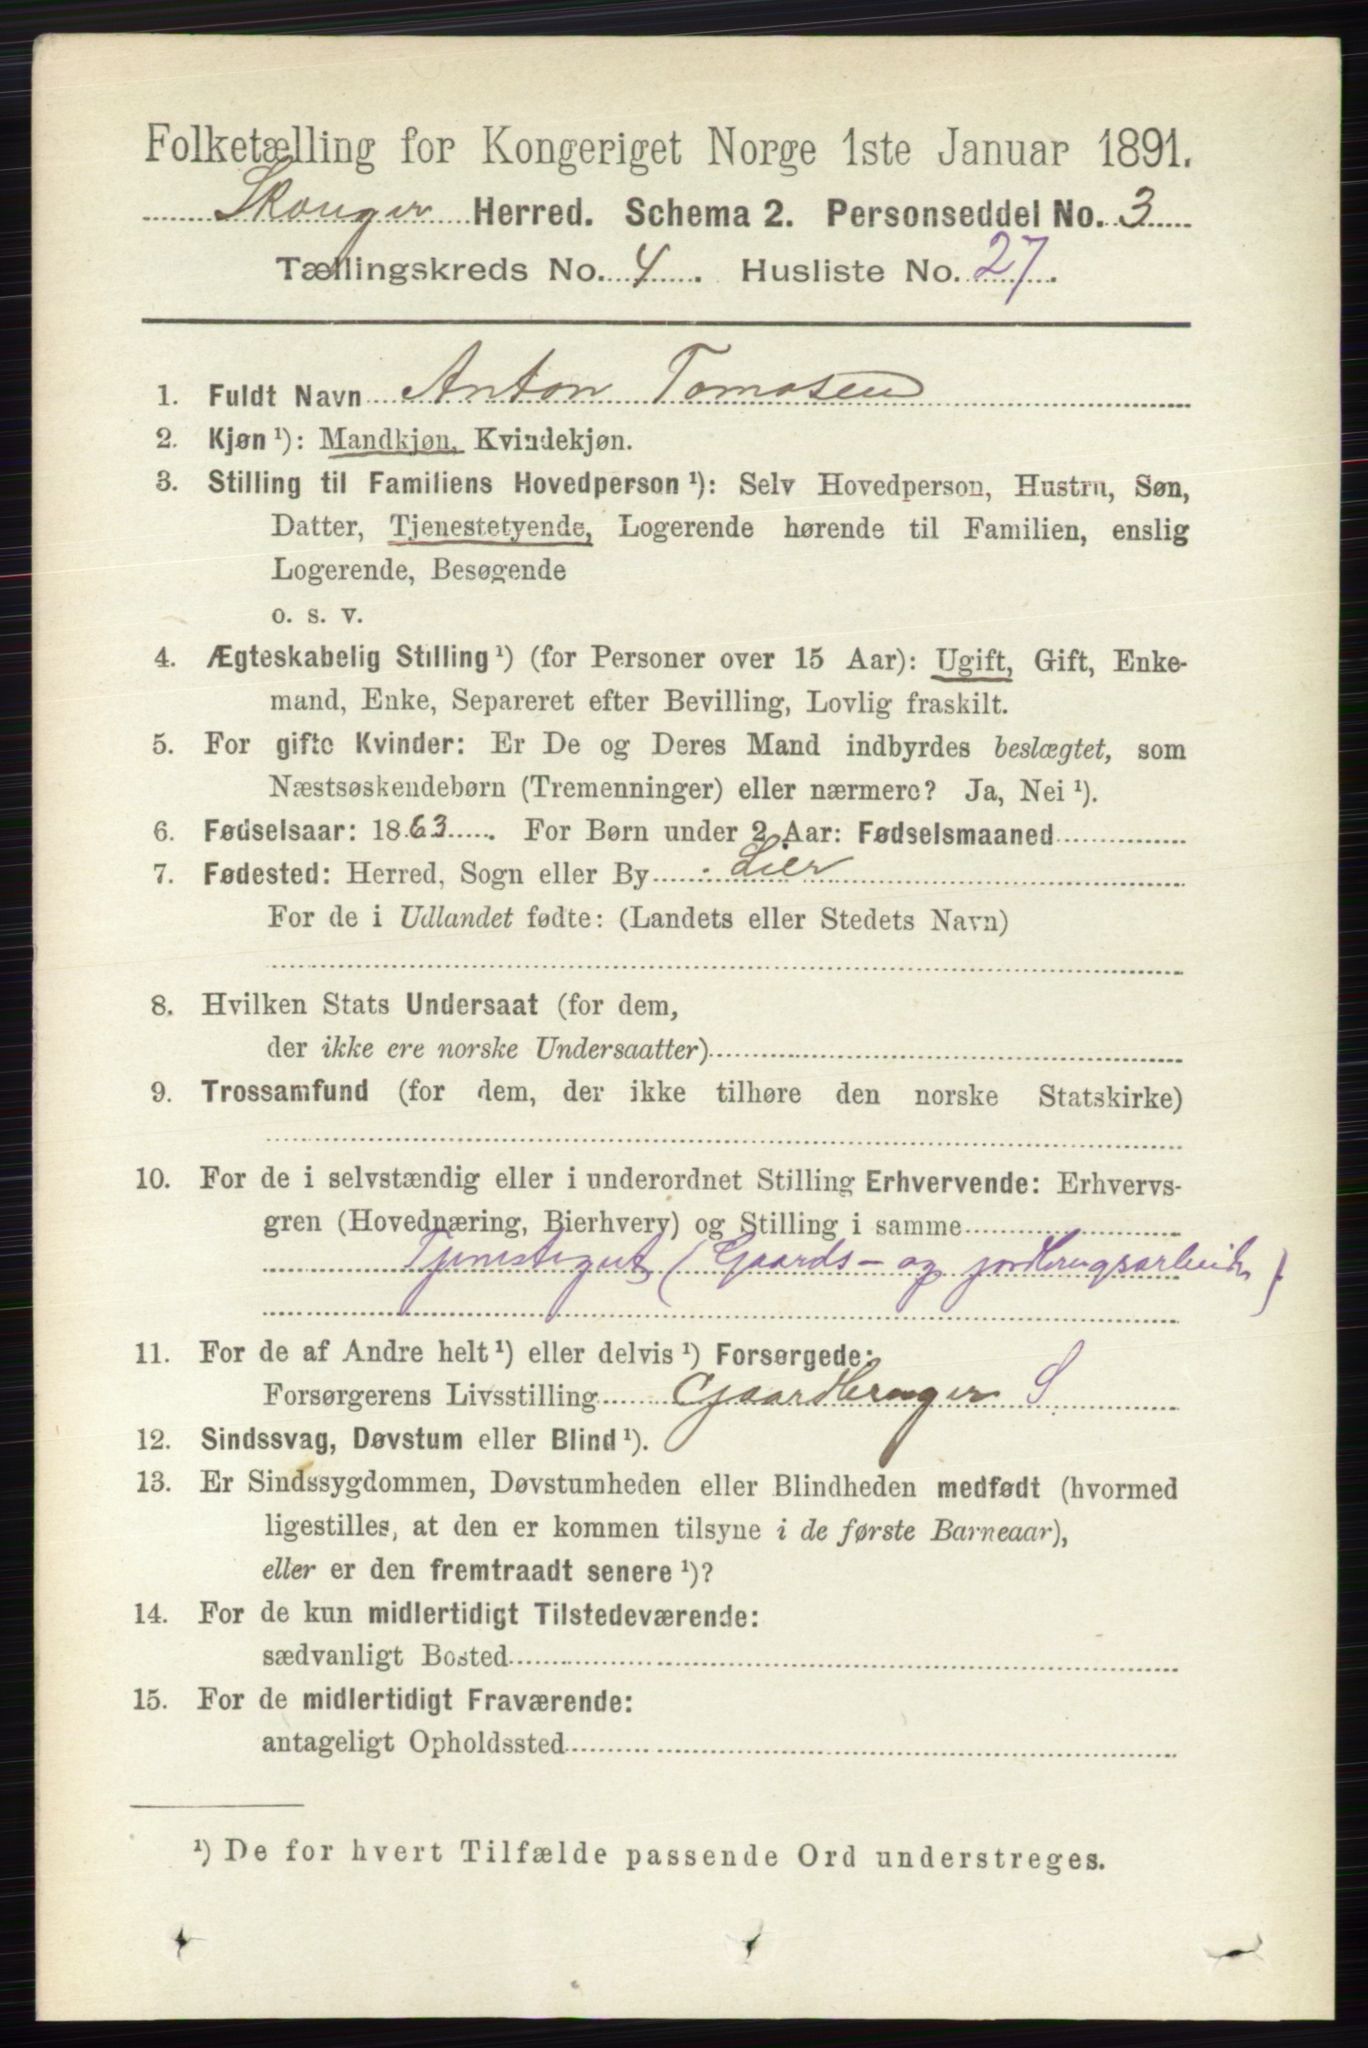 Folketælling for Kongeriget Norge 1ste Januar 1891.
Skouger Herred. Schema 2. Personseddel No. 3
Tællingskreds No. 4. Husliste No. 27.
1. Fuldt Navn Anton Tomasen
2. Kjøn ¹): Mandkjøn, Kvindekjøn.
3. Stilling til Familiens Hovedperson ¹): Selv Hovedperson, Hustru, Søn,
Datter, Tjenestetyende, Logerende hørende til Familien, enslig
Logerende, Besøgende
o. s. v.
4. Ægteskabelig Stilling ¹) (for Personer over 15 Aar): Ugift, Gift, Enke-
mand, Enke, Separeret efter Bevilling, Lovlig fraskilt.
5. For gifte Kvinder: Er De og Deres Mand indbyrdes beslægtet, som
Næstsøskendebørn (Tremenninger) eller nærmere? Ja, Nei ¹).
6. Fødselsaar: 1863. For Børn under 2 Aar: Fødselsmaaned
7. Fødested: Herred, Sogn eller By Lier
For de i Udlandet fødte: (Landets eller Stedets Navn)
8. Hvilken Stats Undersaat (for dem,
der ikke ere norske Undersaatter)
9. Trossamfund (for dem, der ikke tilhøre den norske Statskirke)
10. For de i selvstændig eller i underordnet Stilling Erhvervende: Erhvervs-
gren (Hovednæring, Bierhverv) og Stilling i samme
Tjenestegut (Gaards- og jordbrugsarbeide)
11. For de af Andre helt ¹) eller delvis ¹) Forsørgede:
Forsørgerens Livsstilling Gaardbruger S
12. Sindssvag, Døvstum eller Blind ¹).
13. Er Sindssygdommen, Døvstumheden eller Blindheden medfødt (hvormed
ligestilles, at den er kommen tilsyne i de første Barneaar),
eller er den fremtraadt senere ¹)?
14. For de kun midlertidigt Tilstedeværende:
sædvanligt Bosted
15. For de midlertidigt Fraværende:
antageligt Opholdssted
¹) De for hvert Tilfælde passende Ord understreges.